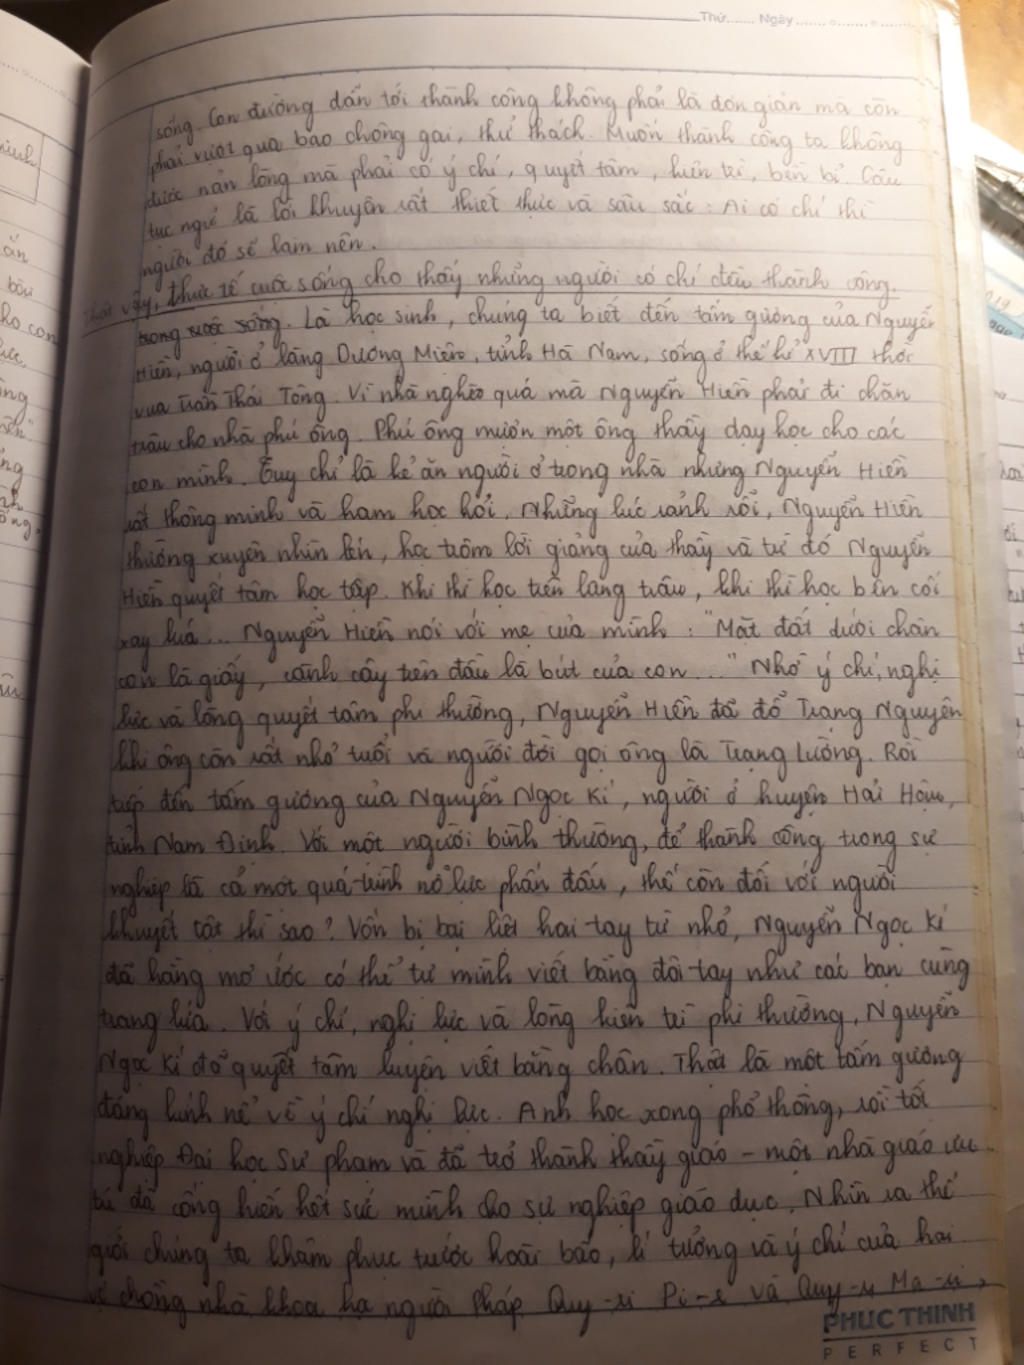 Thứ...... Ngày...........
sống. Con đường dẫn tới thành công không phải là đơn giản mà còn
phải vượt qua bao chông gai, thử thách. Muốn thành công ta không
được nản lòng mà phải có ý chí, quyết tâm, kiên trì, bền bỉ. Câu
tục ngữ là lời khuyên rất thiết thực và sâu sắc: Ai có chí thì
người đó sẽ làm nên.
Thật vậy, thực tế cuộc sống cho thấy những người có chí đều thành công.
trong cuộc sống. Là học sinh, chúng ta biết đến tấm gương của Nguyễn
Hiền, người ở làng Dương Miện, tỉnh Hà Nam, sống ở thế kỉ XVIII thời
vua Trần Thái Tông. Vì nhà nghèo quá mà Nguyễn Hiền phải đi chăn
trâu cho nhà phú ông. Phú ông mướn một ông thầy dạy học cho các
con mình. Tuy chỉ là kẻ ăn người ở trong nhà nhưng Nguyễn Hiền
rất thông minh và ham học hỏi. Những lúc rảnh rỗi, Nguyễn Hiền
thường xuyên nhìn lén, học trộm lời giảng của thầy và từ đó Nguyễn
Hiền quyết tâm học tập. Khi thì học trên lưng trâu, khi thì học bên cối
xay lúa... Nguyễn Hiền nói với mẹ của mình: "Mặt đất dưới chân
con là giấy, cành cây trên đầu là bút của con..." Nhờ ý chí, nghị
lực và lòng quyết tâm phi thường, Nguyễn Hiền đã đỗ Trạng Nguyên
khi ông còn rất nhỏ tuổi và người đời gọi ông là Trạng Lường. Rồi
tiếp đến tấm gương của Nguyễn Ngọc Kí, người ở huyện Hải Hậu,
tỉnh Nam Định. Với một người bình thường, để thành công trong sự
nghiệp là cả một quá trình nỗ lực phấn đấu, thế còn đối với người
khuyết tật thì sao? Vốn bị bại liệt hai tay từ nhỏ, Nguyễn Ngọc Kí
đã hằng mơ ước có thể tự mình viết bằng đôi tay như các bạn cùng
trang lứa. Với ý chí, nghị lực và lòng kiên trì phi thường, Nguyễn
Ngọc Kí đã quyết tâm luyện viết bằng chân. Thật là một tấm gương
đáng kính nể về ý chí nghị lực. Anh học xong phổ thông, rồi tốt
nghiệp Đại học Sư phạm và đã trở thành thầy giáo - một nhà giáo ưu
tú đã cống hiến hết sức mình cho sự nghiệp giáo dục. Nhìn ra thế
giới chúng ta khâm phục trước hoài bão, lí tưởng và ý chí của hai
vợ chồng nhà khoa học người Pháp Quy-ri Pi-e và Quy-ri Ma-ri,
PHUC THINH
PERFECT